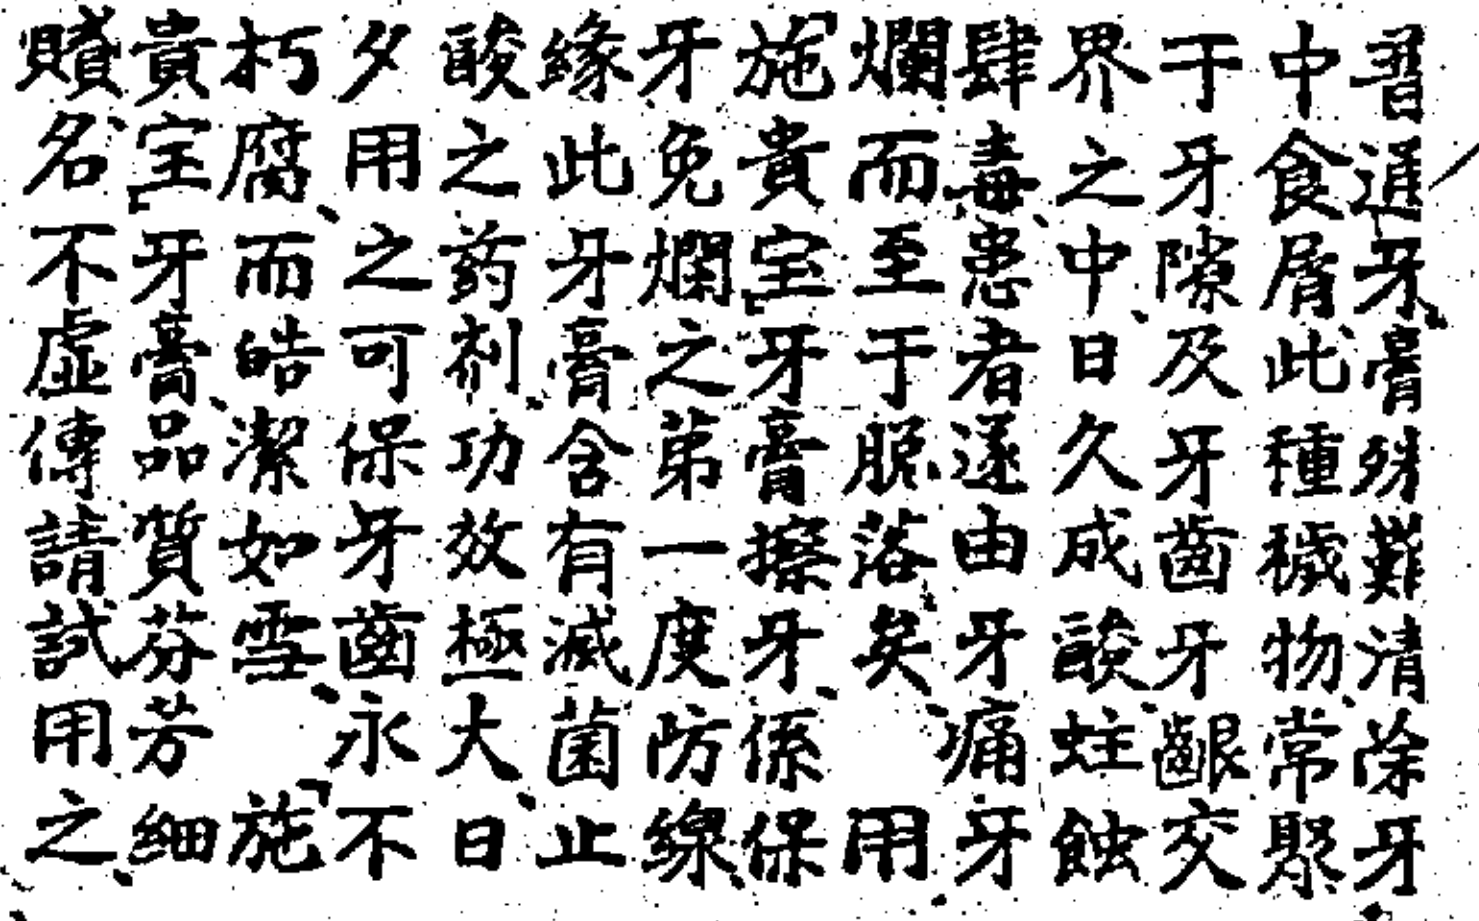 普通牙膏殊難清除牙
中食屑此種穢物、常聚
于牙隙及牙齒牙齦交
界之中、日久成酸、蛀蝕
肆毒、患者遂由牙痛牙
爛而至于脫落矣、用
「施貴宝」牙膏擦牙、係保
牙免爛之第一度防線、
緣此牙膏含有滅菌止
酸之葯剂、功效極大、日
夕用之可保牙齒永不
朽腐、而皓潔如雪、「施
貴宝」牙膏、品質芬芳細
膩名不虛傳請試用之、